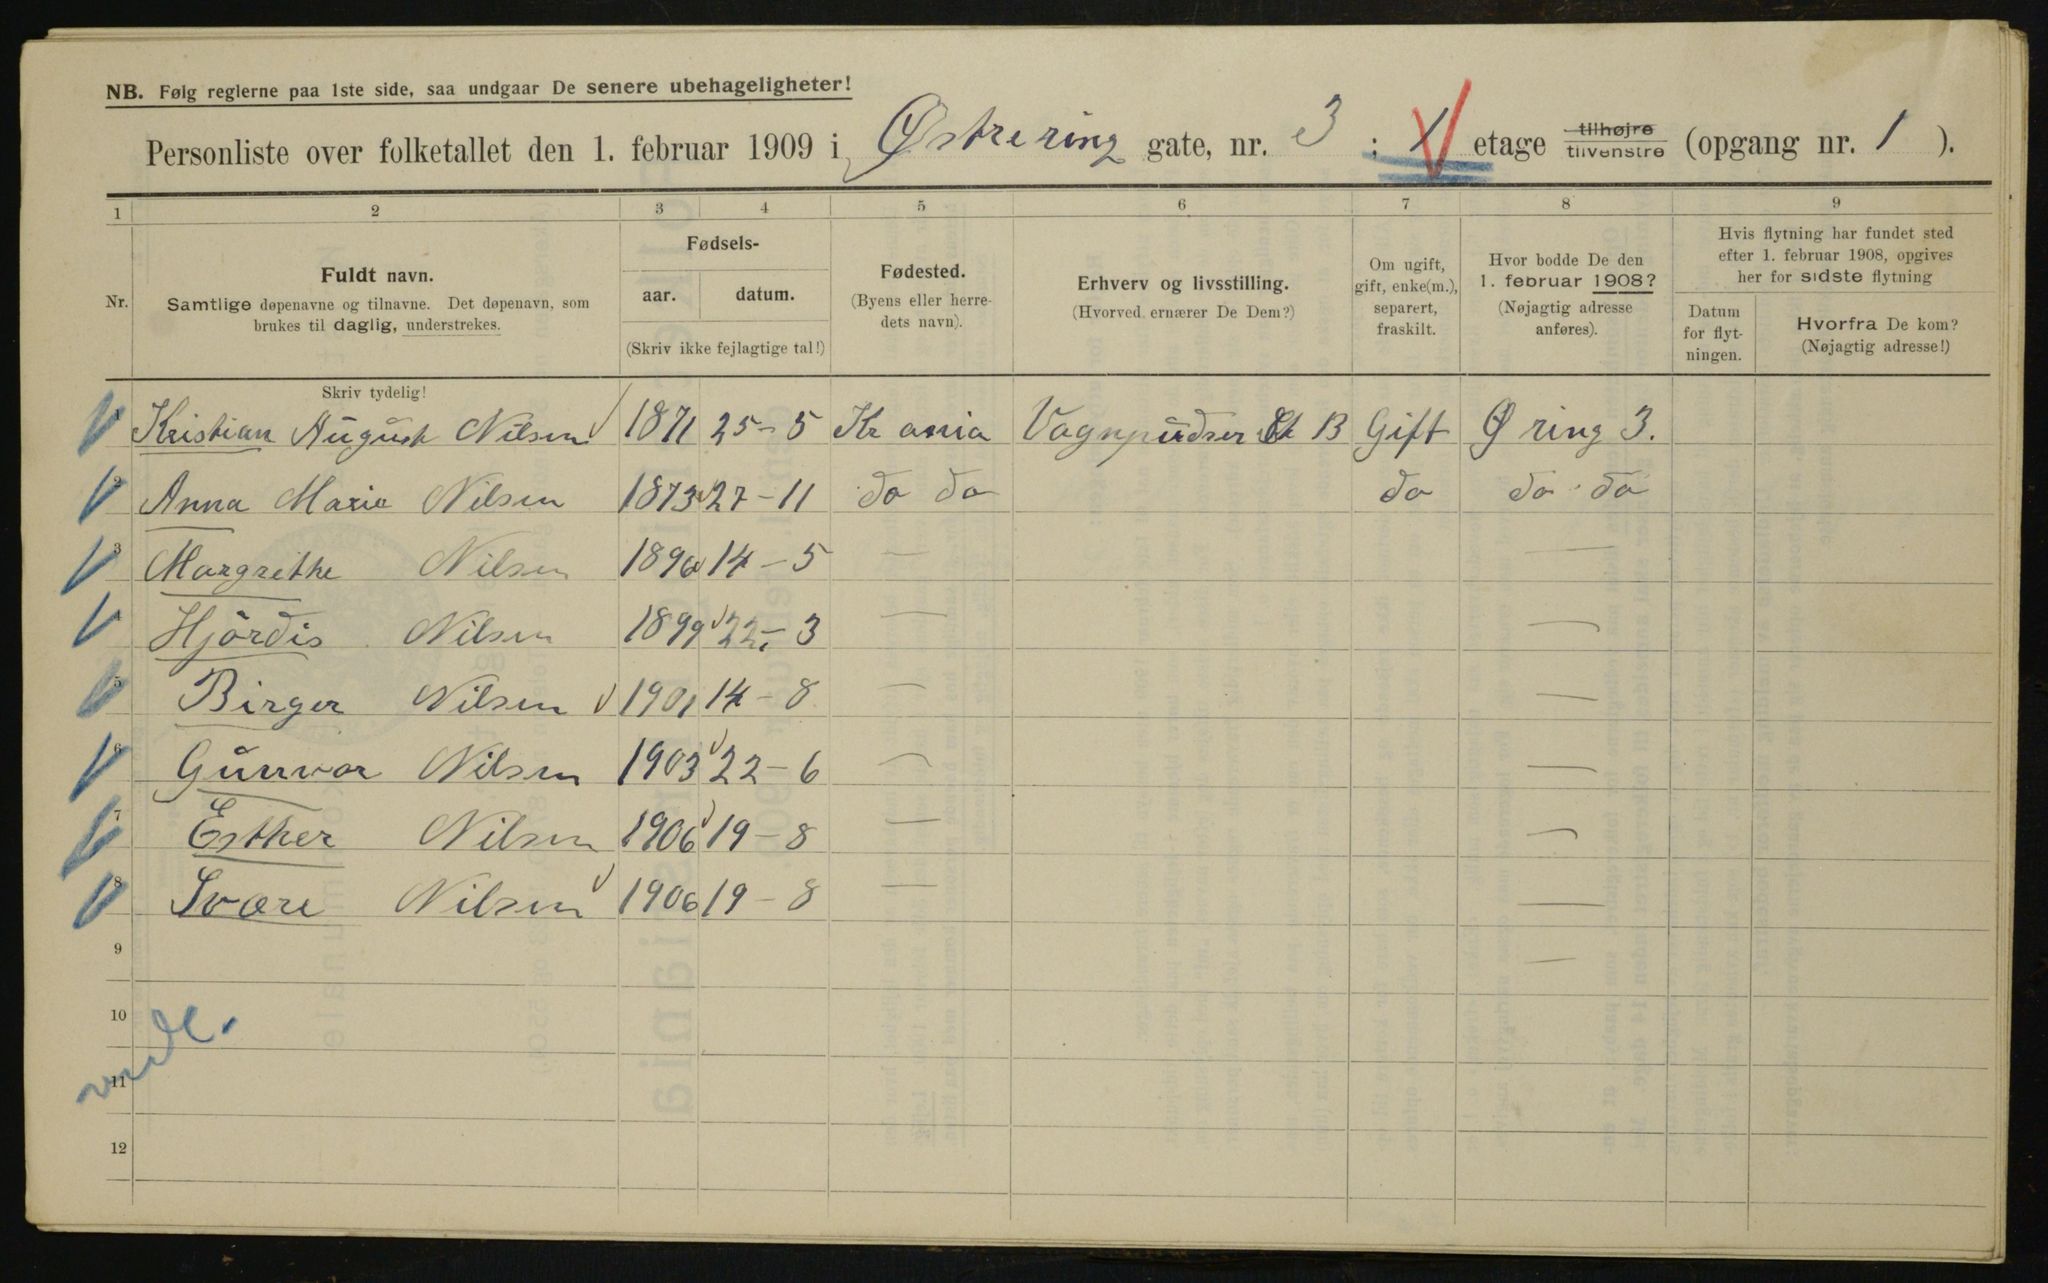 NB. Følg reglerne paa 1ste side, saa undgaar De senere ubehageligheter!
Personliste over folketallet den 1. februar 1909 i Østre ring gate, nr. 3 : 1 etage tilhøjre tilvenstre (opgang nr. 1 ).
1 2 3 4 5 6 7 8 9
Nr.
Fuldt navn.
Samtlige døpenavne og tilnavne. Det døpenavn, som
brukes til daglig, understrekes.
Fødsels-
aar. datum.
(Skriv ikke fejlagtige tal!)
Fødested.
(Byens eller herre-
dets navn).
Erhverv og livsstilling.
(Hvorved ernærer De Dem?)
Om ugift,
gift, enke(m.),
separert,
fraskilt.
Hvor bodde De den
1. februar 1908?
(Nøjagtig adresse
anføres).
Hvis flytning har fundet sted
efter 1. februar 1908, opgives
her for sidste flytning
Datum
for flyt-
ningen.
Hvorfra De kom?
(Nøjagtig adresse!)
Skriv tydelig!
1 Kristian August Nilsen 1871 25-5 Kr ania Vognpudser B Gift Ø ring 3.
2 Anna Marie Nilsen 1873 27-11 do do do do do
3 Margrethe Nilsen 1896 14-5 — —
4 Hjördis Nilsen 1899 22-3 — —
5 Birger Nilsen 1901 14-8 — —
6 Gunvor Nilsen 1903 22-6 — —
7 Esther Nilsen 1906 19-8 — —
8 Svære Nilsen 1906 19-8 — —
9 —
10
11
12